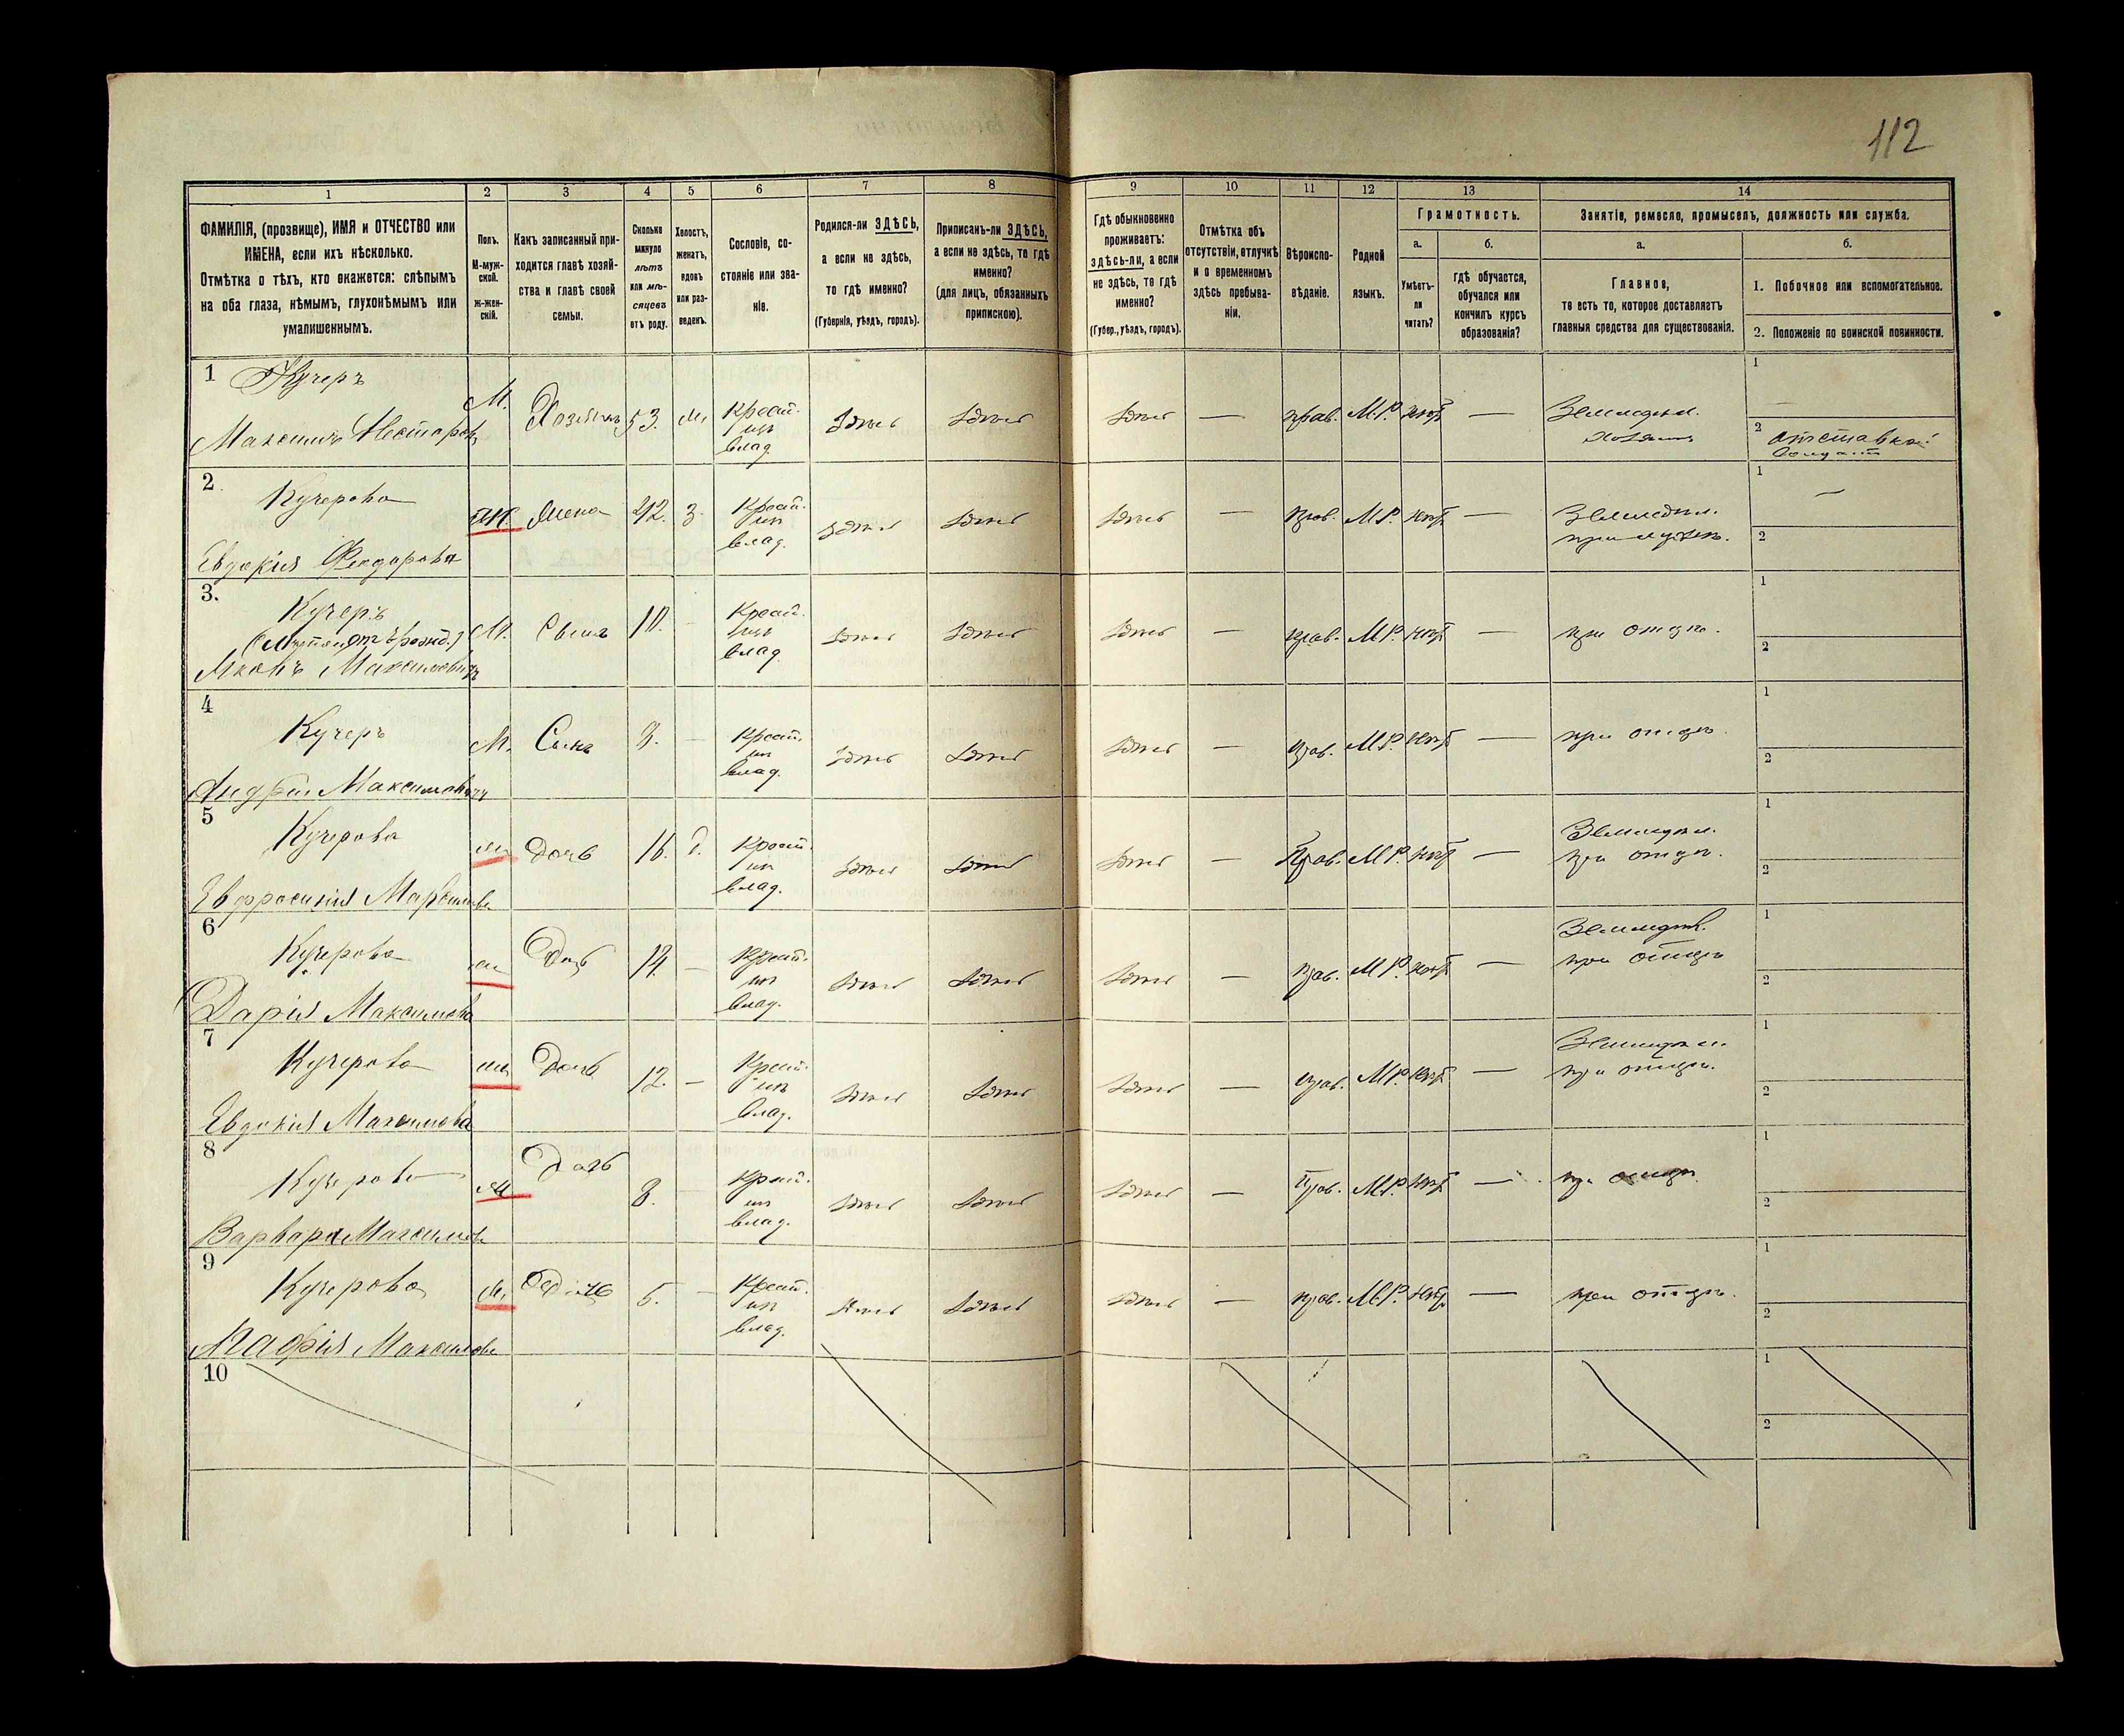 112
1 2 3 4 5 6 7 8 9 10 11 12 13 14
ФАМИЛІЯ, (прозвище), ИМЯ и ОТЧЕСТВО или
ИМЕНА, если ихъ нѣсколько.
Отмѣтка о тѣхъ, кто окажется: слѣпымъ
на оба глаза, нѣмымъ, глухонѣмымъ или
умалишеннымъ.
Полъ.
М-муж-
ской.
ж-жен-
скій.
Какъ записанный при-
ходится главѣ хозяй-
ства и главѣ своей
семьи.
Сколько
минуло
лѣтъ
или мѣ-
сяцевъ
отъ роду.
Холостъ,
женатъ,
вдовъ
или раз-
веденъ.
Сословіе, со-
стояніе или зва-
ніе.
Родился-ли ЗДѢСЬ,
а если не здѣсь,
то гдѣ именно?
(Губернія, уѣздъ, городъ).
Приписанъ-ли ЗДѢСЬ,
а если не здѣсь, то гдѣ
именно?
(для лицъ, обязанныхъ
припискою).
Гдѣ обыкновенно
проживаетъ:
здѣсь-ли, а если
не здѣсь, то гдѣ
именно?
(Губер., уѣздъ, городъ).
Отмѣтка объ
отсутствіи, отлучкѣ
и о временномъ
здѣсь пребыва-
ніи.
Вѣроиспо-
вѣданіе.
Родной
языкъ.
Грамотность.
а.
Умѣетъ-
ли
читать?
б.
гдѣ обучается,
обучался или
кончилъ курсъ
образованія?
Занятіе, ремесло, промыселъ, должность или служба.
а.
Главное,
то есть то, которое доставляетъ
главныя средства для существованія.
б.
1. Побочное или вспомогательное.
2. Положеніе по воинской повинности.
1 Кучеръ
Максимъ Несторовъ
М. Хозяинъ 53. Крест.
изъ
влад.
здѣсь здѣсь здѣсь — прав. М.Р. нѣтъ — Земледѣл.
хозяинъ
1
2 отставной
солдатъ
2. Кучерова
Евдокія Феодорова
Ж. Жена 42. З. Крест.
изъ
влад.
здѣсь здѣсь здѣсь — прав. М.Р. нѣтъ — Земледѣл.
при мужѣ.
1 —
2
3. Кучеръ
Максимовичъ
М. Сынъ 10. - Крест.
изъ
влад.
здѣсь здѣсь здѣсь — прав. М.Р. нѣтъ — при отцѣ.
1
2
4 Кучеръ
Андрей Максимовичъ
М. Сынъ — Крест.
изъ
влад.
здѣсь здѣсь здѣсь — прав. М.Р. нѣтъ — при отцѣ.
1
2
5 Кучерова
Евфросинія Максимова
ж Дочь 16. Крест.
изъ
влад.
здѣсь здѣсь здѣсь — Прав. М.Р. нѣтъ — Земледѣл.
при отцѣ.
1
2
6 Кучерова
Дарія Максимова
ж Дочь 14. — Крест.
изъ
влад.
здѣсь здѣсь здѣсь — прав. М.Р. нѣтъ — Земледѣл.
при отцѣ
1
2
7 Кучерова
Евдокія Максимова
ж Дочь 12. — Крест.
изъ
влад.
здѣсь здѣсь здѣсь — прав. М.Р. нѣтъ — Земледѣл.
при отцѣ.
1
2
8 Кучерова
Варвара Максимова
ж Дочь 8. - Крест.
изъ
влад.
здѣсь здѣсь здѣсь — Прав. М.Р. нѣтъ — при отцѣ.
1
2
9 Кучерова
Агафія Максимова
ж. Дочь — Крест.
изъ
влад.
здѣсь здѣсь здѣсь — прав. М.Р. нѣтъ — при отцѣ.
1
2
10
1
2